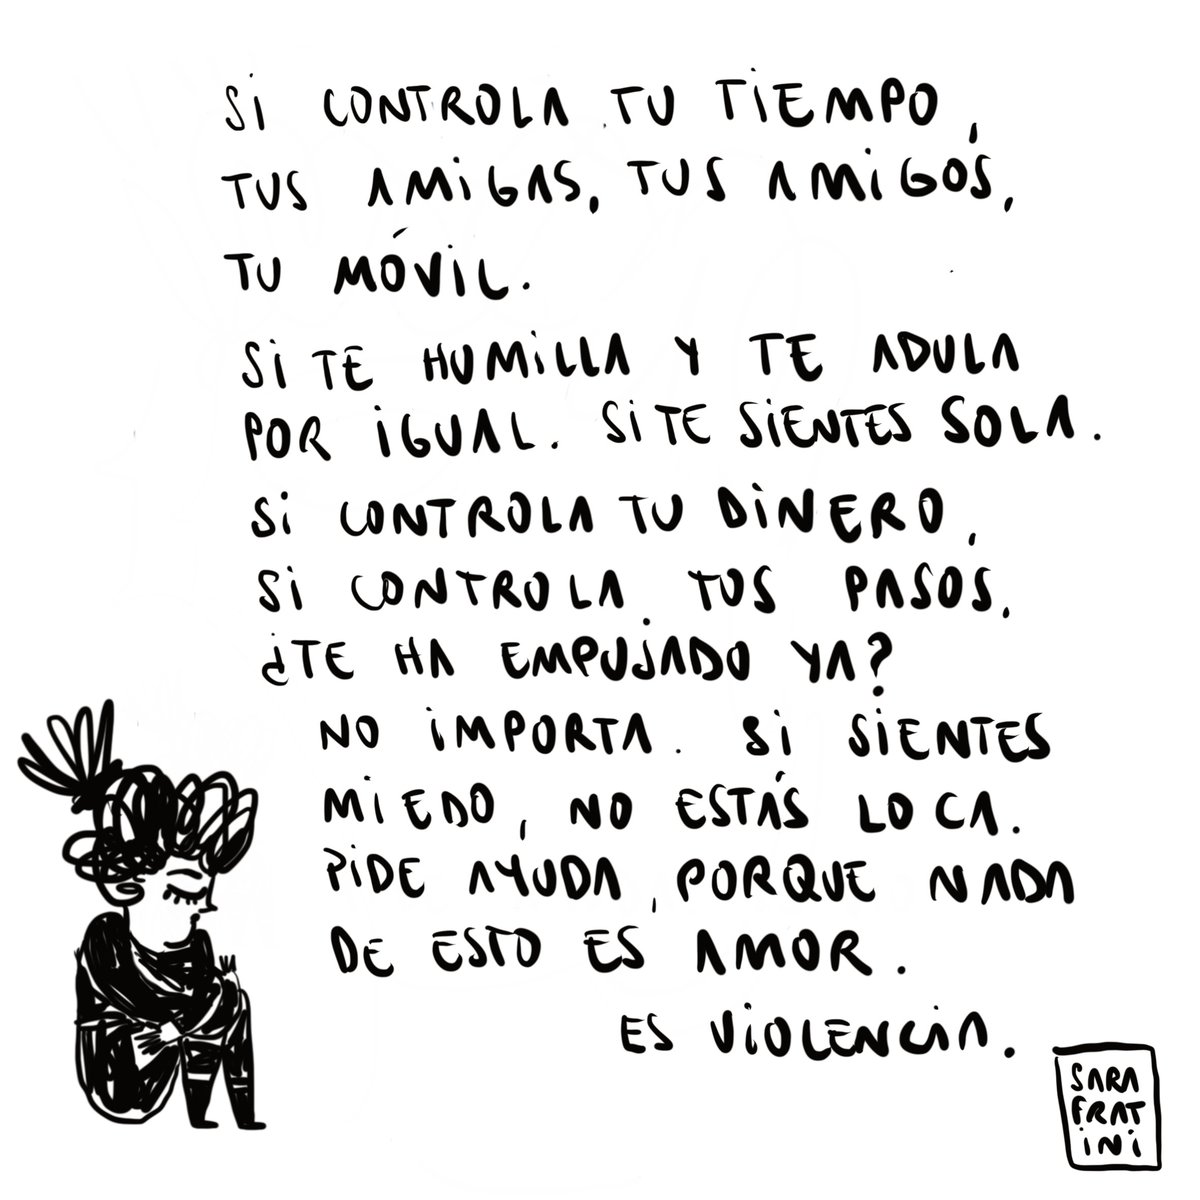 Si CONTROLA TU TiEMPO,
TUS AMiGAS, TUS AMiGOS,
TU MÓViL.
Si TE HUMiLLA Y TE ADULA
POR iGUAL. Si TE SiENTES SOLA.
Si CONTROLA TU DiNERO,
Si CONTROLA TUS PASOS.
¿TE HA EMPUjADO YA?
NO iMPORTA. Si SiENTES
MiEDO, NO ESTÁS LOCA.
PiDE AYUDA, PORQUE NADA
DE ESTO ES AMOR.
ES ViOLENCiA.
SARA
FRAT
iNi